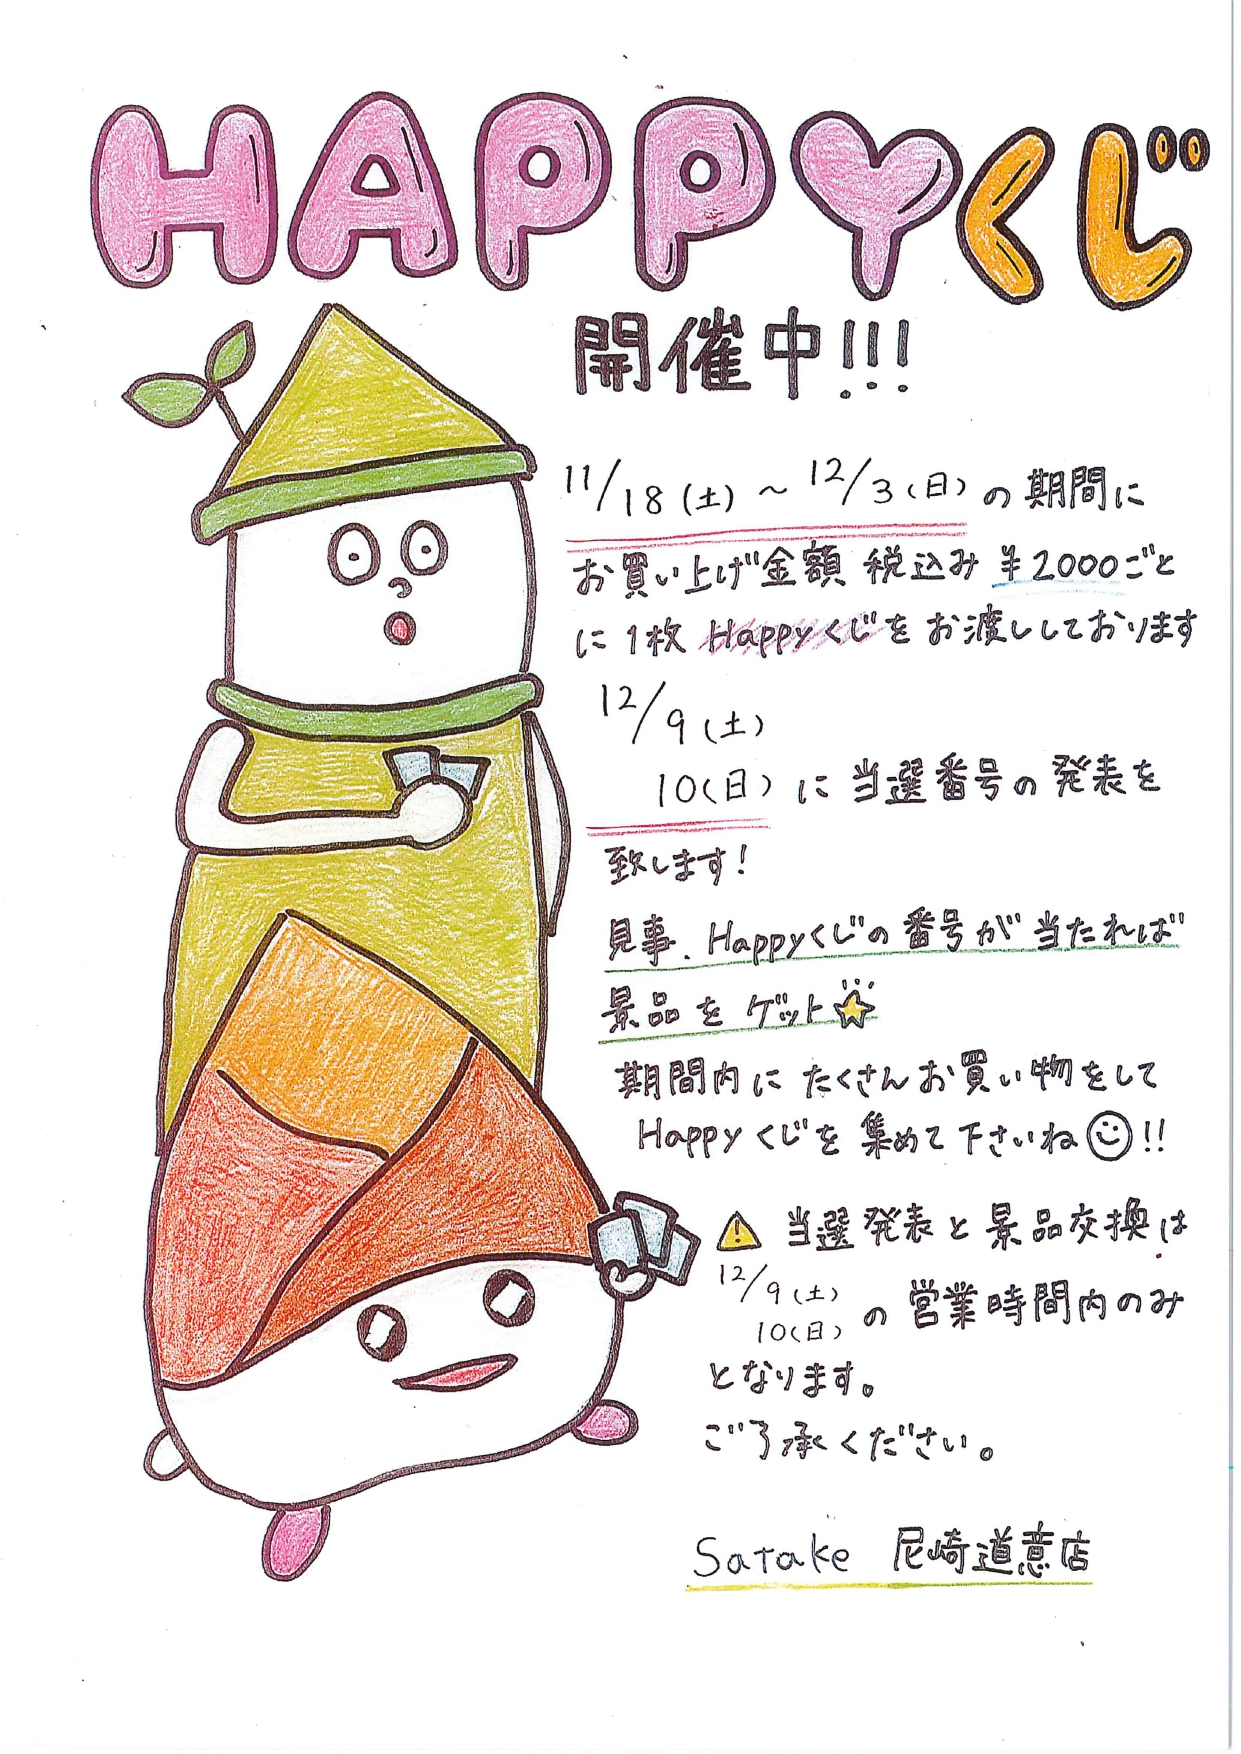 HAPPYくじ
開催中!!!
11/18(土)～12/3(日)の期間に
お買い上げ金額 税込み ¥2000ごと
に1枚 Happyくじをお渡ししております
12/9(土)
10(日)に当選番号の発表を
致します!
見事、Happyくじの番号が当たれば
景品をゲット☆
期間内にたくさんお買い物をして
Happyくじを集めて下さいね☺!!
⚠ 当選発表と景品交換は
12/9(土)
10(日)の営業時間内のみ
となります。
ご了承ください。
Satake 尼崎道意店